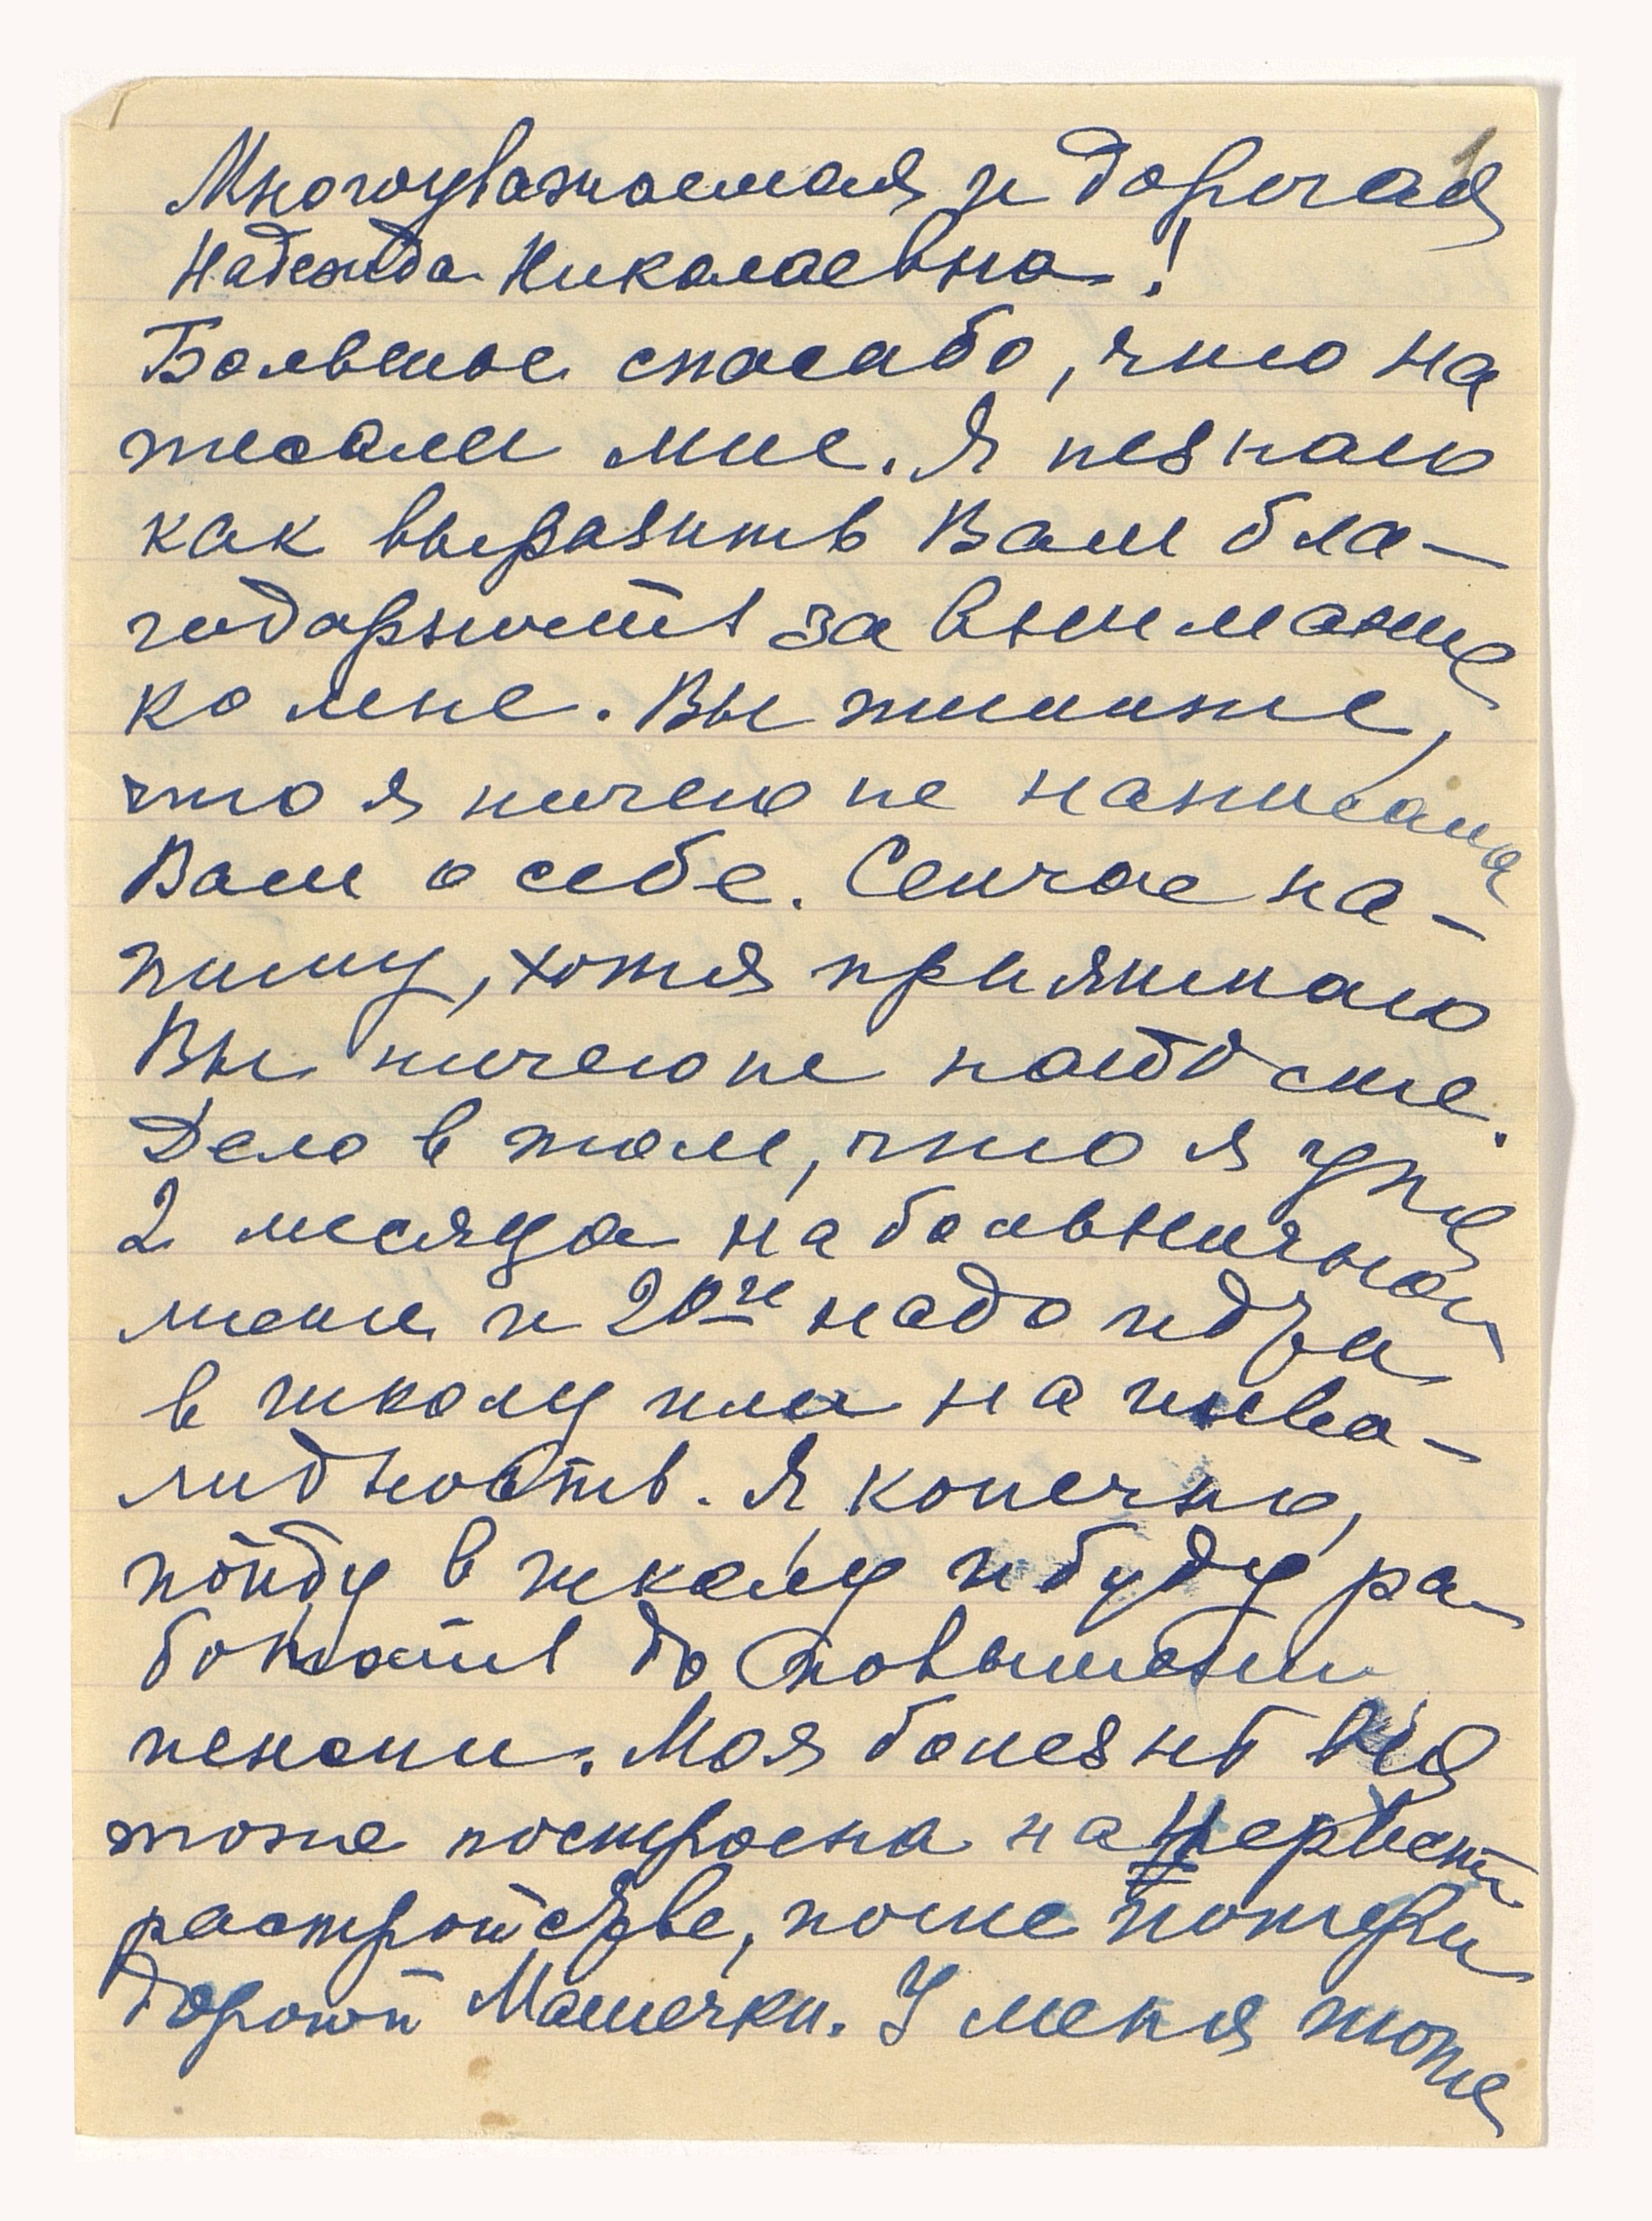 Многоуважаемая и дорогая
Надежда Николаевна!
Большое спасибо, что на
писали мне. Я незнаю
как выразить Вам бла-
годарность за внимание
ко мне. Вы пишите,
что я ничего не написала
Вам о себе. Сейчас на-
пишу, хотя приятного
Вы ничего не найдёте.
Дело в том, что я уже
2 месяца на больничном
листе и 20го надо идти
в школу или на инва-
лидность. Я конечно,
пойду в школу и буду ра
ботать до повышения
пенсии. Моя болезнь вся
тоже построена на нервном
растройстве, после потери
дорогой Машечки. У меня тоже